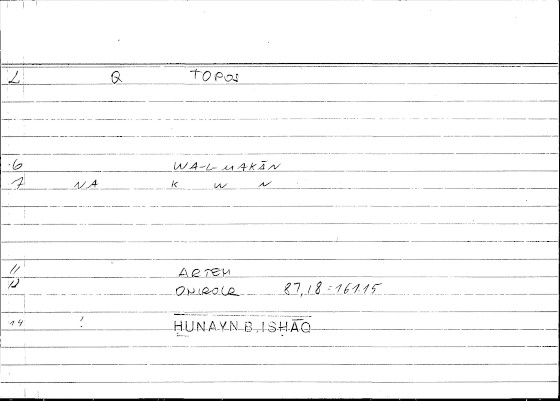 L Q TOPOS
6 WA-L-MAKĀN
7 NA K W N
11 ARTEM
12 ONIROCR 87,18 = 161.15
14 ! HUNAYN B. ISHĀQ